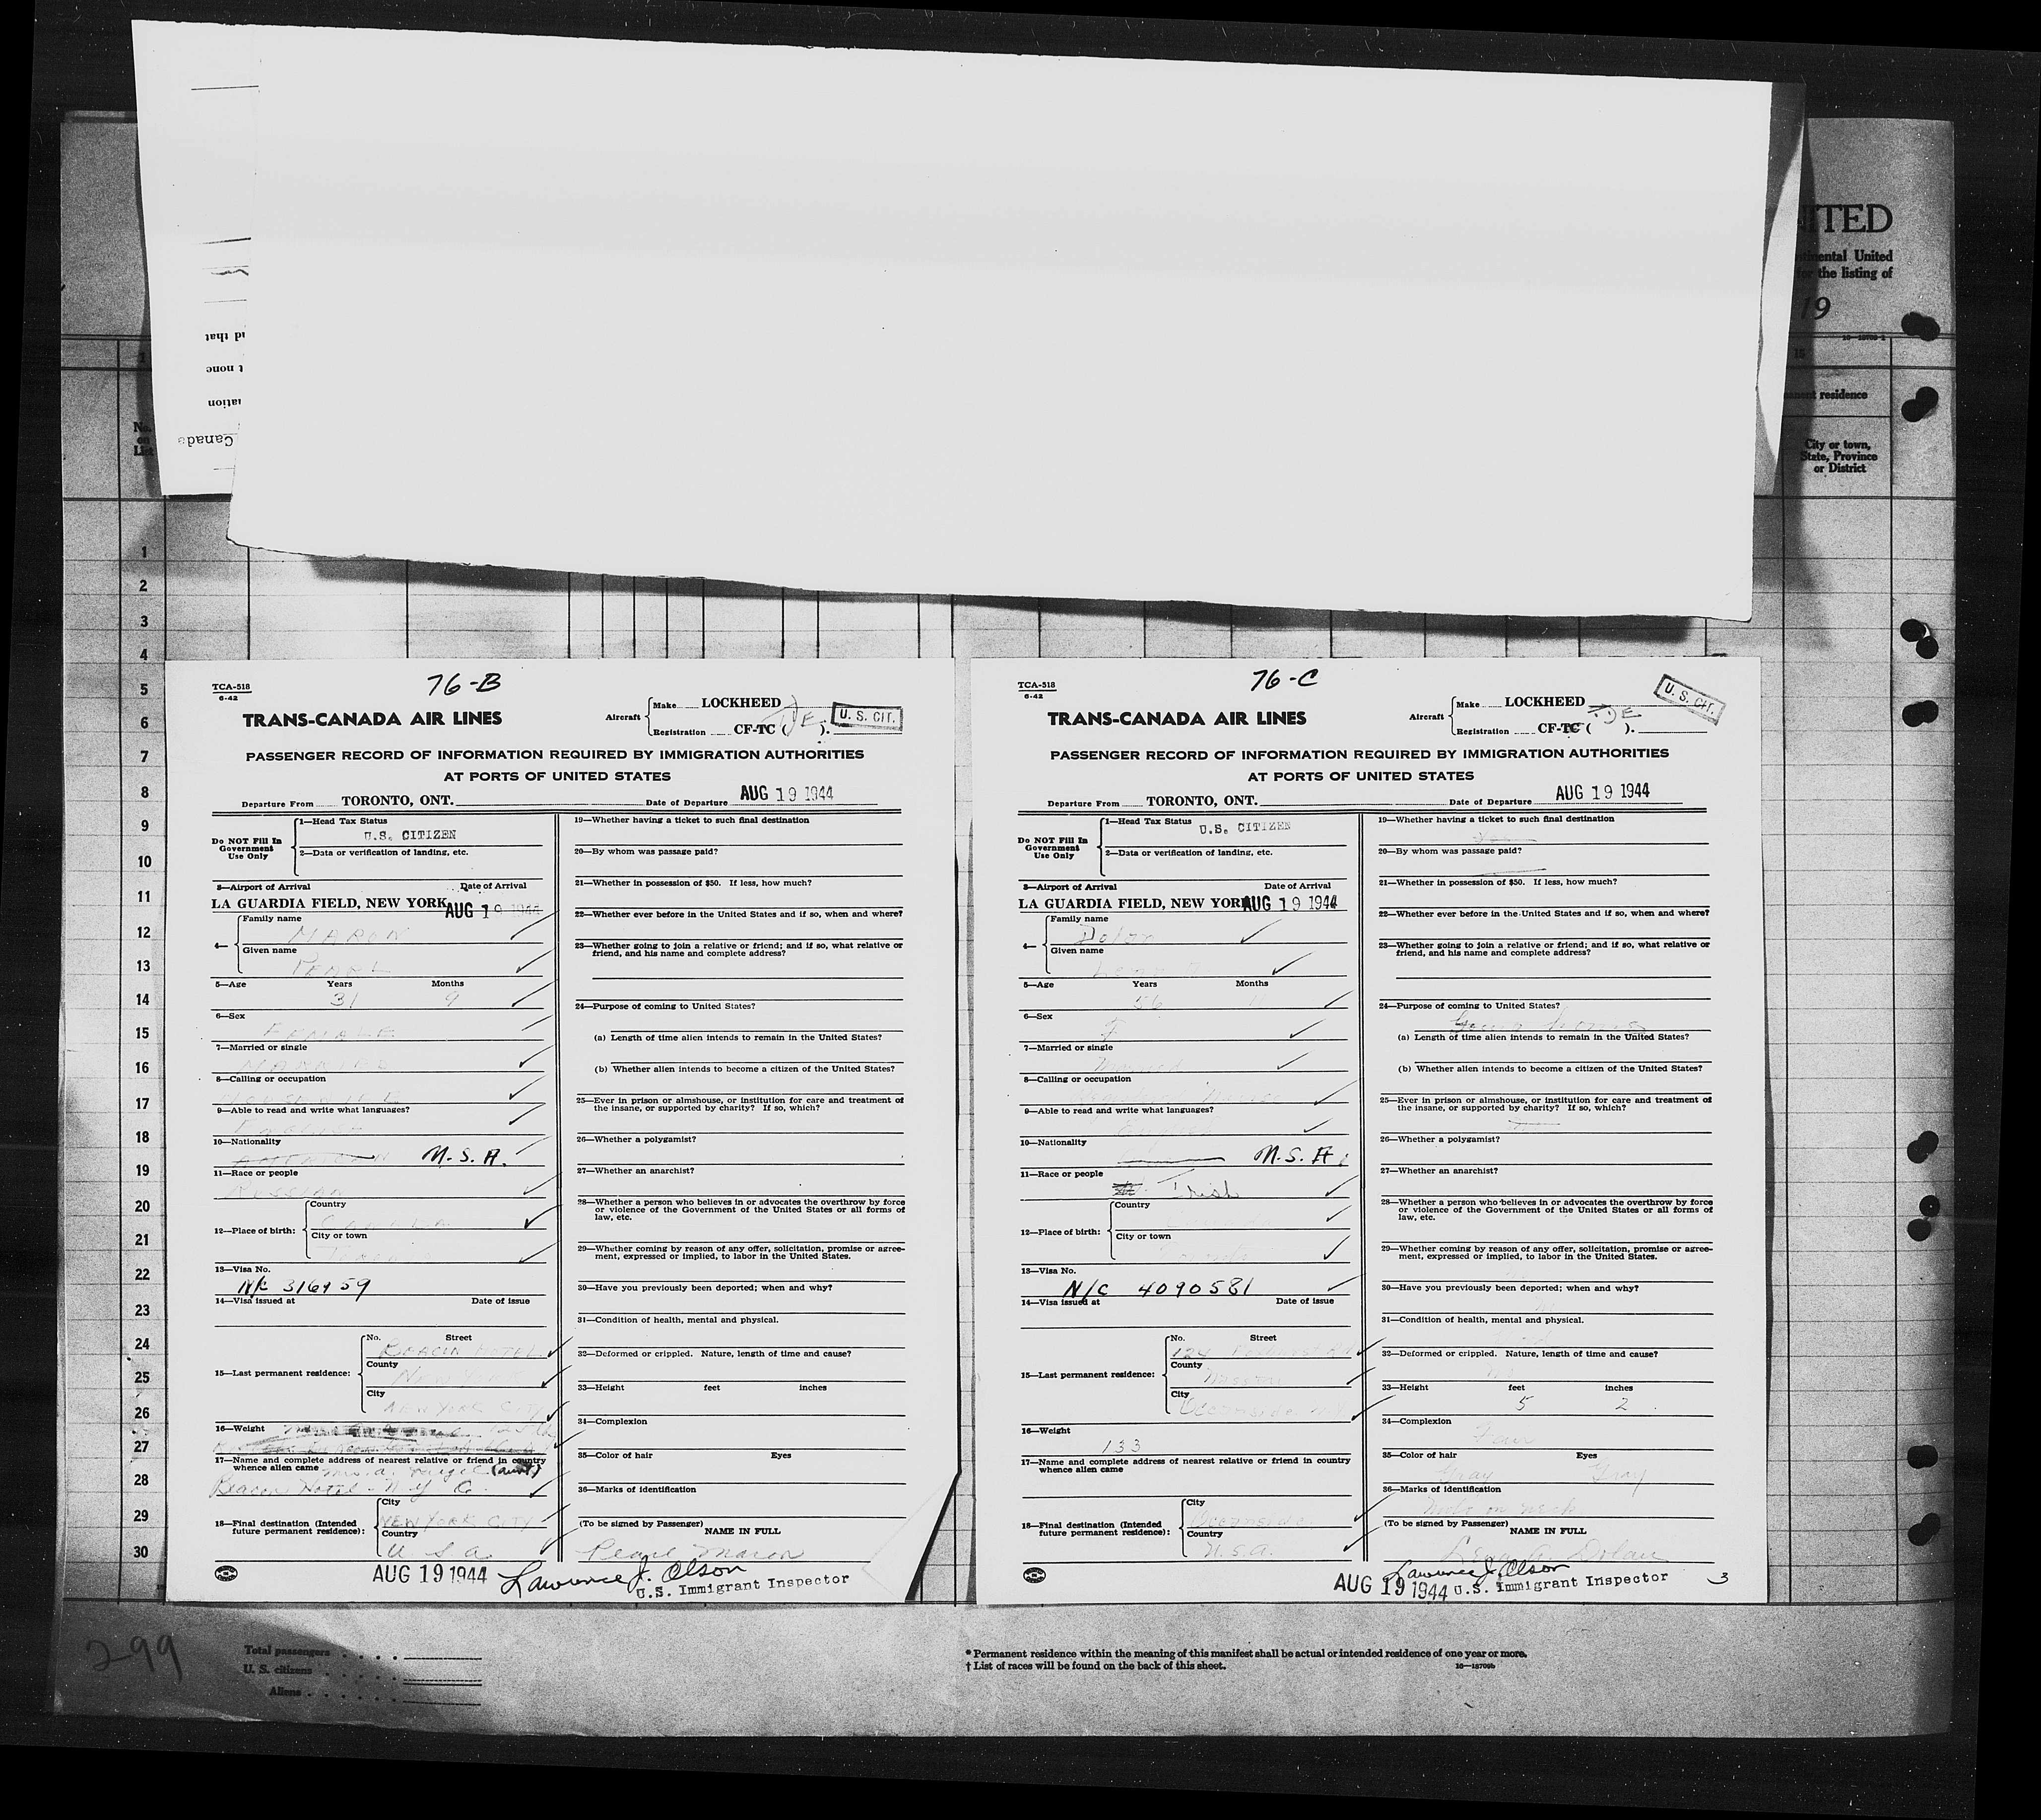 ITED
tinental United
for the listing of
19
residence
City or town,
State, Province
or District
No.
on
List
Canada
1
2
3
4
5
6
7
8
9
10
11
12
13
14
15
16
17
18
19
20
21
22
23
24
25
26
27
28
29
30
TCA-518
6-42
76-B
TRANS-CANADA AIR LINES
Aircraft
Make LOCKHEED
Registration CF-TC ( DE ).
U. S. CIT.
PASSENGER RECORD OF INFORMATION REQUIRED BY IMMIGRATION AUTHORITIES
AT PORTS OF UNITED STATES
Departure From TORONTO, ONT. Date of Departure AUG 19 1944
Do NOT Fill In
Government
Use Only
1—Head Tax Status
U.S. CITIZEN
2—Data or verification of landing, etc.
3—Airport of Arrival Date of Arrival
LA GUARDIA FIELD, NEW YORK AUG 19 1944
4—
Family name
MARON
Given name
PEARL
5—Age Years Months
31 9
6—Sex
FEMALE
7—Married or single
MARRIED
8—Calling or occupation
HOUSEWIFE
9—Able to read and write what languages?
ENGLISH
10—Nationality
AMERICAN U.S.A.
11—Race or people
RUSSIAN
12—Place of birth:
Country
CANADA
City or town
13—Visa No.
N/C 3164959
14—Visa issued at Date of issue
15—Last permanent residence:
No. Street
BEACON HOTEL
County
NEW YORK
City
NEW YORK CITY
16—Weight
17—Name and complete address of nearest relative or friend in country
whence alien came
Mrs. A. (aunt)
Beacon Hotel - N Y C.
18—Final destination (Intended
future permanent residence):
City
NEW YORK CITY
Country
U S A
19—Whether having a ticket to such final destination
20—By whom was passage paid?
21—Whether in possession of $50. If less, how much?
22—Whether ever before in the United States and if so, when and where?
23—Whether going to join a relative or friend; and if so, what relative or
friend, and his name and complete address?
24—Purpose of coming to United States?
(a) Length of time alien intends to remain in the United States?
(b) Whether alien intends to become a citizen of the United States?
25—Ever in prison or almshouse, or institution for care and treatment of
the insane, or supported by charity? If so, which?
26—Whether a polygamist?
27—Whether an anarchist?
28—Whether a person who believes in or advocates the overthrow by force
or violence of the Government of the United States or all forms of
law, etc.
29—Whether coming by reason of any offer, solicitation, promise or agree-
ment, expressed or implied, to labor in the United States.
30—Have you previously been deported; when and why?
31—Condition of health, mental and physical.
32—Deformed or crippled. Nature, length of time and cause?
33—Height feet inches
34—Complexion
35—Color of hair Eyes
36—Marks of identification
(To be signed by Passenger)
NAME IN FULL
Pearl Maron
AUG 19 1944 Lawrence J. Olson
U.S. Immigrant Inspector
TCA-518
6-42
76-C
TRANS-CANADA AIR LINES
Aircraft
Make LOCKHEED
Registration CF-TC ( DE ).
U. S. CIT.
PASSENGER RECORD OF INFORMATION REQUIRED BY IMMIGRATION AUTHORITIES
AT PORTS OF UNITED STATES
Departure From TORONTO, ONT. Date of Departure AUG 19 1944
Do NOT Fill In
Government
Use Only
1—Head Tax Status
U.S. CITIZEN
2—Data or verification of landing, etc.
3—Airport of Arrival Date of Arrival
LA GUARDIA FIELD, NEW YORK AUG 19 1944
4—
Family name
Dolan
Given name
5—Age Years Months
56
6—Sex
F
7—Married or single
Married
8—Calling or occupation
9—Able to read and write what languages?
English
10—Nationality
U.S.A.
11—Race or people
Irish
12—Place of birth:
Country
City or town
13—Visa No.
N/C 4090581
14—Visa issued at Date of issue
15—Last permanent residence:
No. Street
124
County
Nassau
City
Oceanside
16—Weight
133
17—Name and complete address of nearest relative or friend in country
whence alien came
18—Final destination (Intended
future permanent residence):
City
Oceanside
Country
U.S.A.
19—Whether having a ticket to such final destination
Yes
20—By whom was passage paid?
21—Whether in possession of $50. If less, how much?
22—Whether ever before in the United States and if so, when and where?
23—Whether going to join a relative or friend; and if so, what relative or
friend, and his name and complete address?
24—Purpose of coming to United States?
Going home
(a) Length of time alien intends to remain in the United States?
(b) Whether alien intends to become a citizen of the United States?
25—Ever in prison or almshouse, or institution for care and treatment of
the insane, or supported by charity? If so, which?
26—Whether a polygamist?
27—Whether an anarchist?
28—Whether a person who believes in or advocates the overthrow by force
or violence of the Government of the United States or all forms of
law, etc.
29—Whether coming by reason of any offer, solicitation, promise or agree-
ment, expressed or implied, to labor in the United States.
30—Have you previously been deported; when and why?
31—Condition of health, mental and physical.
32—Deformed or crippled. Nature, length of time and cause?
33—Height feet inches
5 2
34—Complexion
Fair
35—Color of hair Eyes
Gray Gray
36—Marks of identification
Mole on neck
(To be signed by Passenger)
NAME IN FULL
Dolan
Lawrence J. Olson
AUG 19 1944 U.S. Immigrant Inspector
3
299
Total passengers
U. S. citizens
Aliens
* Permanent residence within the meaning of this manifest shall be actual or intended residence of one year or more.
† List of races will be found on the back of this sheet.